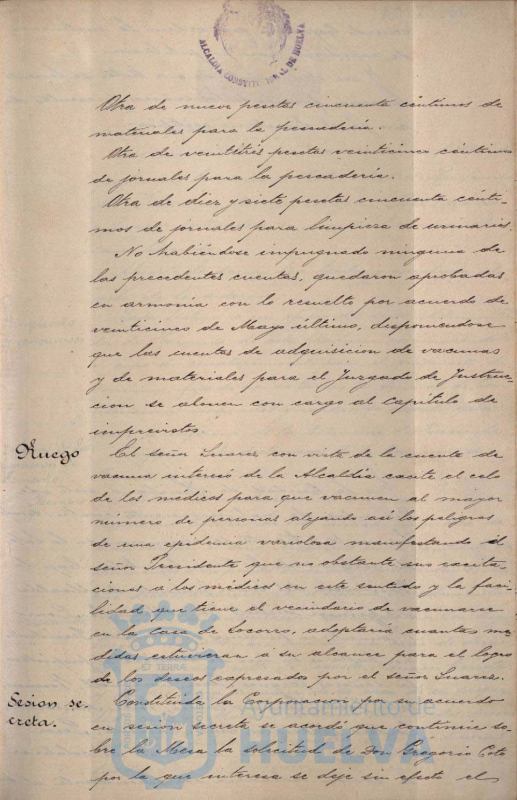 ALCALDIA CONSTITUCIONAL DE HUELVA
Otra de nueve pesetas cincuenta céntimos de
materiales para la pescadería.
Otra de veintitrés pesetas veinticinco céntimos
de jornales para la pescadería.
Otra de diez y siete pesetas cincuenta cénti-
mos de jornales para limpieza de urinarios.
No habiéndose impugnado ninguna de
las precedentes cuentas, quedaron aprobadas
en armonía con lo resuelto por acuerdo de
veinticinco de Mayo último, disponiendose
que las cuentas de adquisicion de vacunas
y de materiales para el Juzgado de Instruc-
cion se abonen con cargo al Capítulo de
imprevistos.
Ruego
El señor Suarez con vista de la cuenta de
vacuna interesó de la Alcaldía excite el celo
de los médicos para que vacunen al mayor
número de personas alejando así los peligros
de una epidemia variolosa manifestando el
señor Presidente que no obstante sus excita-
ciones á los médicos en este sentido y la faci-
lidad que tiene el vecindario de vacunarse
en la Casa de Socorro, adoptaría cuantas me-
didas estuvieran á su alcance para el logro
de los deseos expresados por el señor Suarez.
Sesion se-
creta.
Constituida la Corporacion por su acuerdo
en sesion secreta se acordó que continúe so-
bre la Mesa la solicitud de Don Gregorio Coto
por la que interesa se deje sin efecto el
ET TERRÆ
Ayuntamiento de
HUELVA